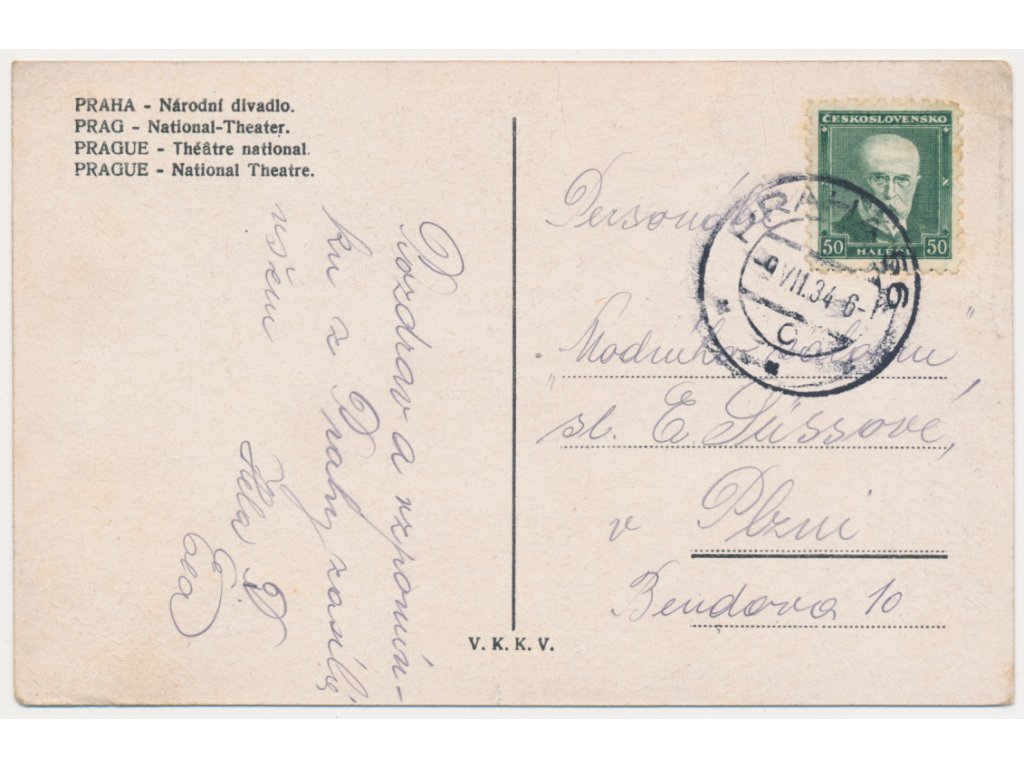 PRAHA - Národní divadlo.
PRAG - National-Theater.
PRAGUE - Théâtre national.
PRAGUE - National Theatre.
Pozdrav a vzpomín-
ku z Prahy zasílá
všem
Hela P.
Eva
V. K. K. V.
ČESKOSLOVENSKO
50 HALÉŘŮ 50
PRAHA 56
9.VII.34-6-
Personál
Modního salonu"
sl. E. Süssové,
v Plzni
Bendova 10